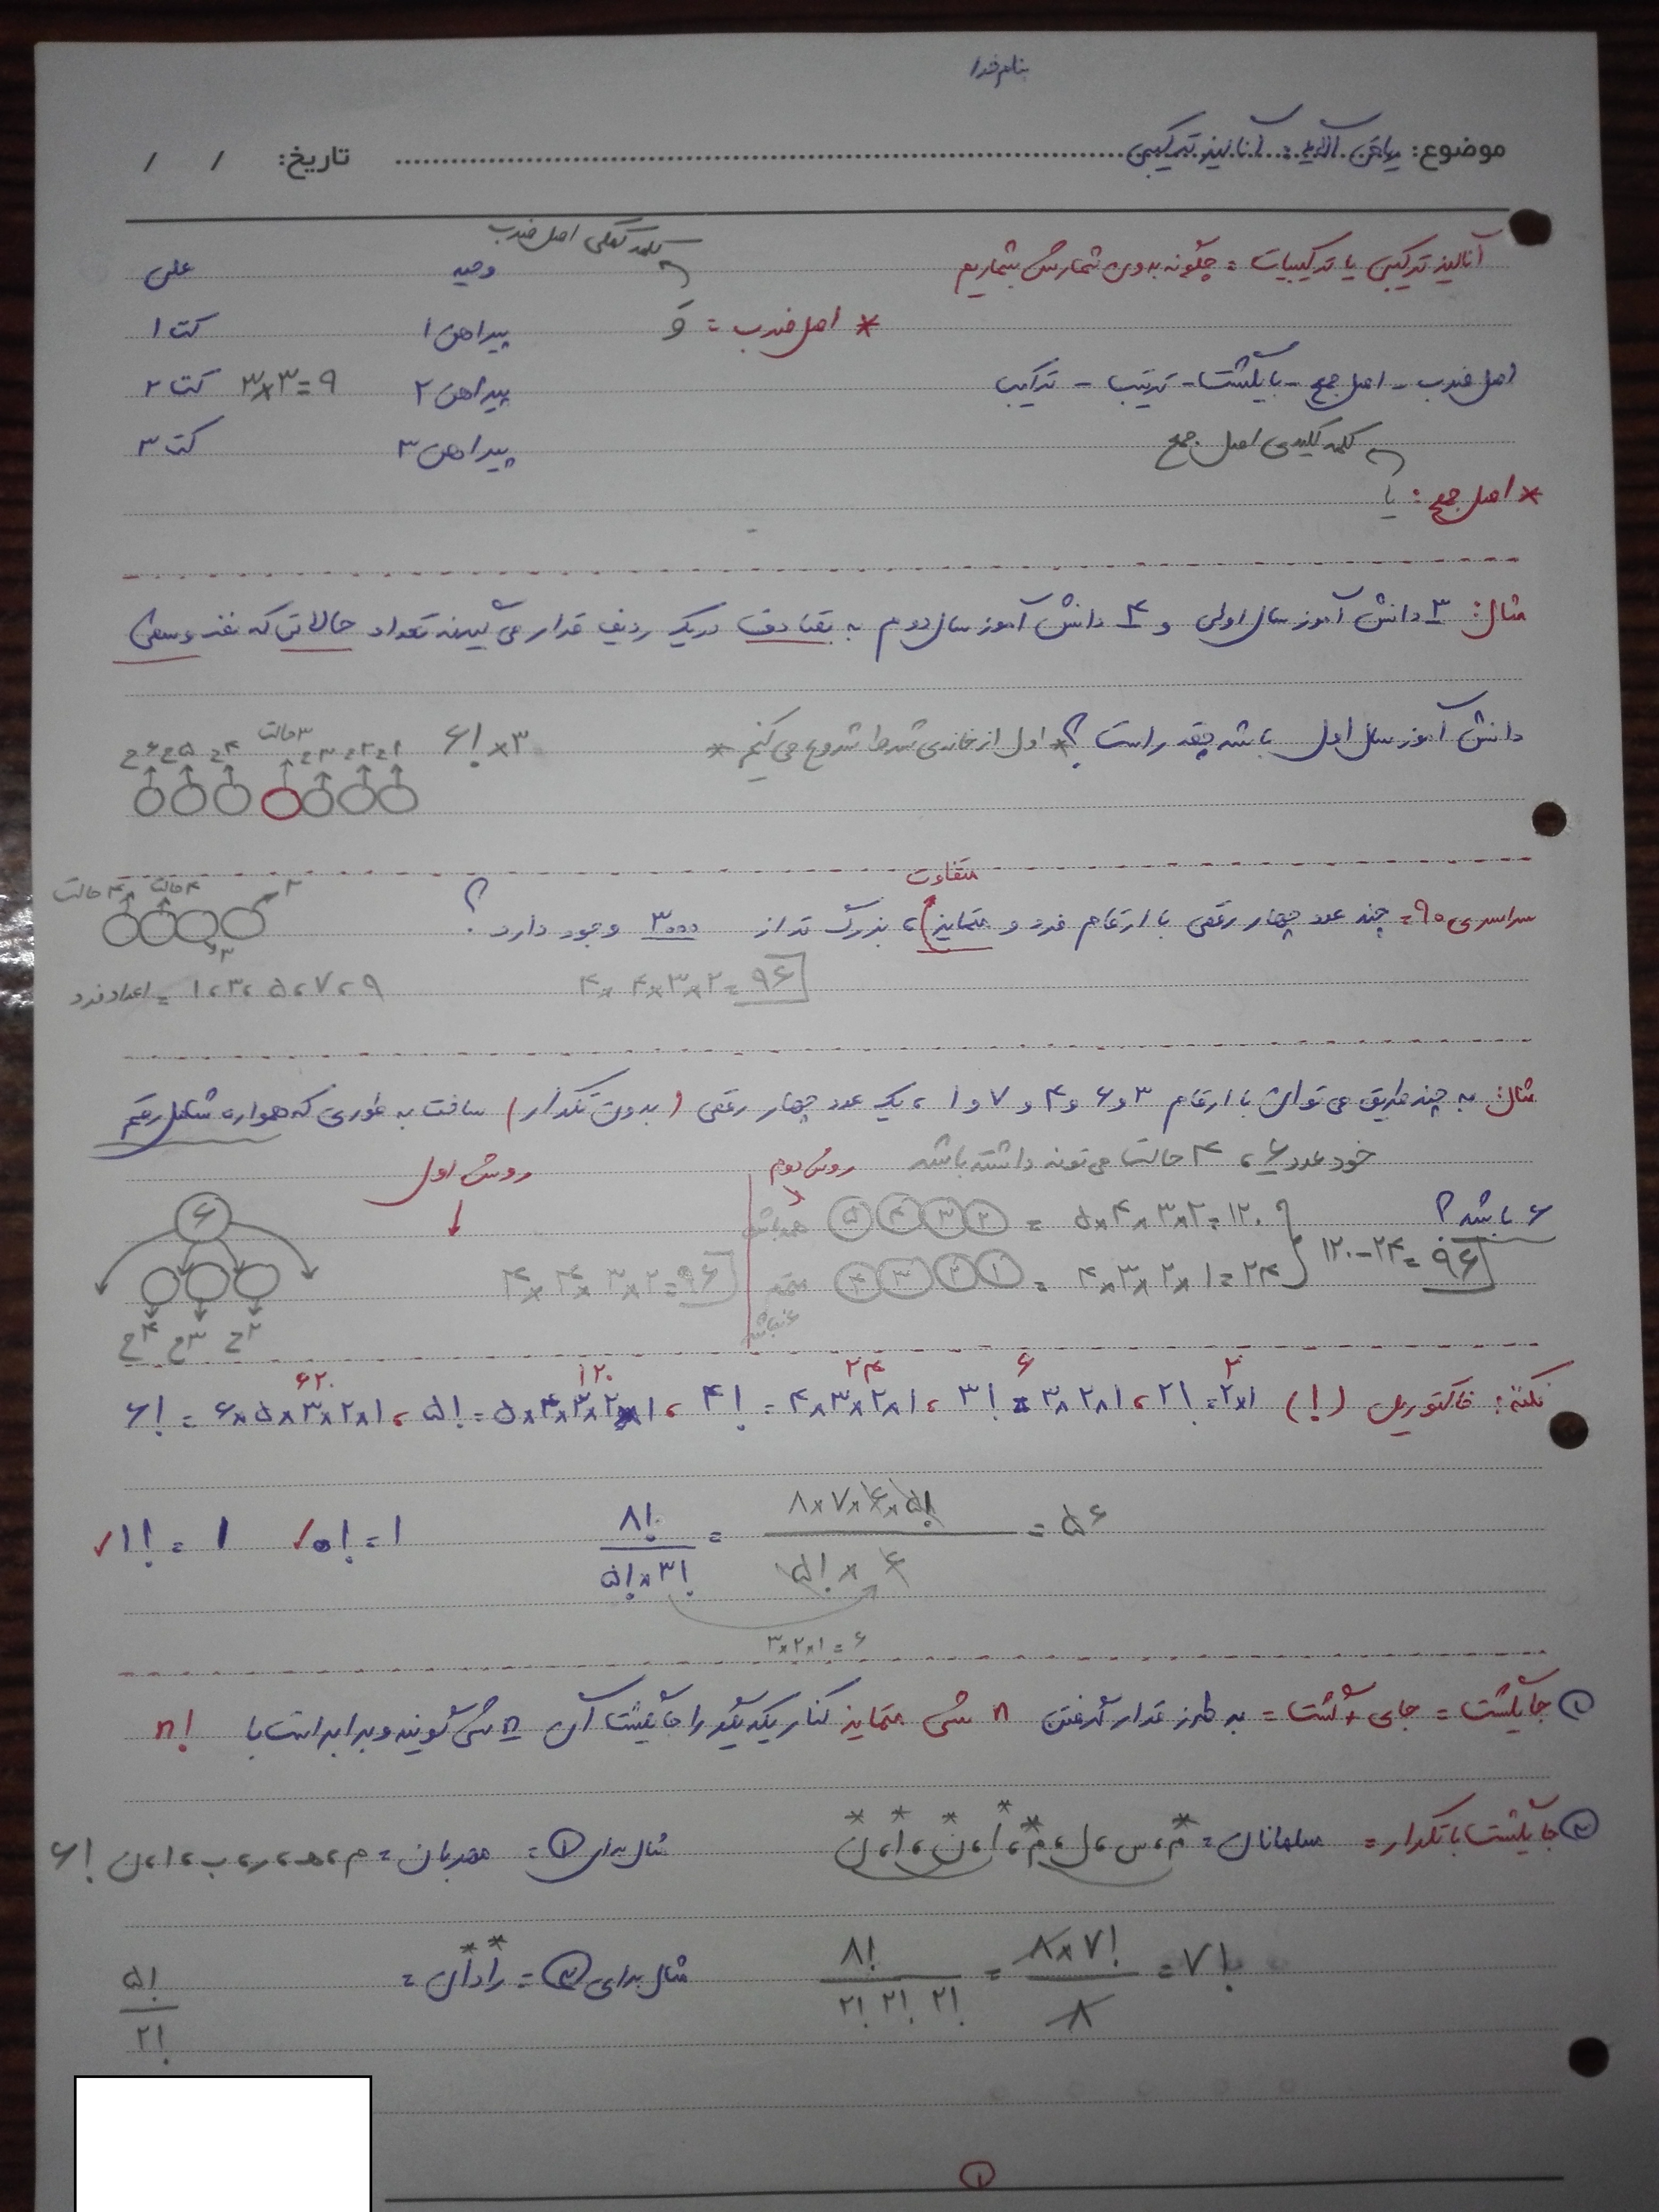 بنام خدا
موضوع: ریاضی ... آنالیز ترکیبی تاریخ: / /
آنالیز ترکیبی یا ترکیبیات = چگونه بدون شمارش بشماریم
کلمه کلیدی اصل ضرب
* اصل ضرب = وَ
علی
پیراهن ۱ کت ۱
پیراهن ۲ کت ۲ ۳×۳=۹
پیراهن ۳ کت ۳
اصل ضرب - اصل جمع - جایگشت - ترتیب - ترکیب
کلمه کلیدی اصل جمع
* اصل جمع: یا
مثال: ۳ دانش آموز سال اولی و ۴ دانش آموز سال دوم به تصادف در یک ردیف قرار می گیرند تعداد حالاتی که نفر وسطی
دانش آموز سال اول باشد چقدر است؟ * اول از خانه‌ی شرط شروع می کنیم * ۶! ×۳
۶ح ۵ح ۴ح ۳حالت ۳ح ۲ح ۱ح
متفاوت
سراسری ۹۰= چند عدد چهار رقمی با ارقام فرد و متمایز، بزرگ تر از ۳۰۰۰ وجود دارد؟
۴حالت ۴حالت ۳ ۲
۴×۴×۳×۲=۹۶
۱،۳،۵،۷،۹ = اعداد فرد
مثال: به چند طریق می توان با ارقام ۳ و ۶ و ۴ و ۷ و ۱، یک عدد چهار رقمی (بدون تکرار) ساخت به طوری که همواره شامل رقم
۶ باشد؟
خود عدد ۶، ۴ حالت می تونه داشته باشه
روش دوم
۵ ۴ ۳ ۲ = ۵×۴×۳×۲=۱۲۰
۴ ۳ ۲ ۱ = ۴×۳×۲×۱=۲۴
۱۲۰-۲۴=۹۶
روش اول
۶
۴×۴×۳×۲=۹۶
۴ح ۳ح ۲ح
۶۲۰ ۱۲۰ ۲۴ ۶ ۲
نکته: فاکتوریل (!) ۲!=۲×۱ ، ۳!=۳×۲×۱ ، ۴!=۴×۳×۲×۱ ، ۵!=۵×۴×۳×۲×۱ ، ۶!=۶×۵×۳×۲×۱
✓۱!=۱ ✓۰!=۱ ۸!/۵!×۳! = ۸×۷×۶×۵!/۵!×۶ = ۵۶
۳×۲×۱=۶
① جایگشت = جای گشت = به طرز قرار گرفتن n شی متمایز کنار یکدیگر را جایگشت آن n شی گویند و برابر است با n!
② جایگشت با تکرار = مسلمانان = م، س، ل، م، ا، ن، ا، ن
مثال برای ① = مهربان = م، هـ، ر، ب، ا، ن ۶!
۸!/۲! ۲! ۲! = ۸×۷!/۸ = ۷!
مثال برای ② = رادان = ۵!/۲!
①